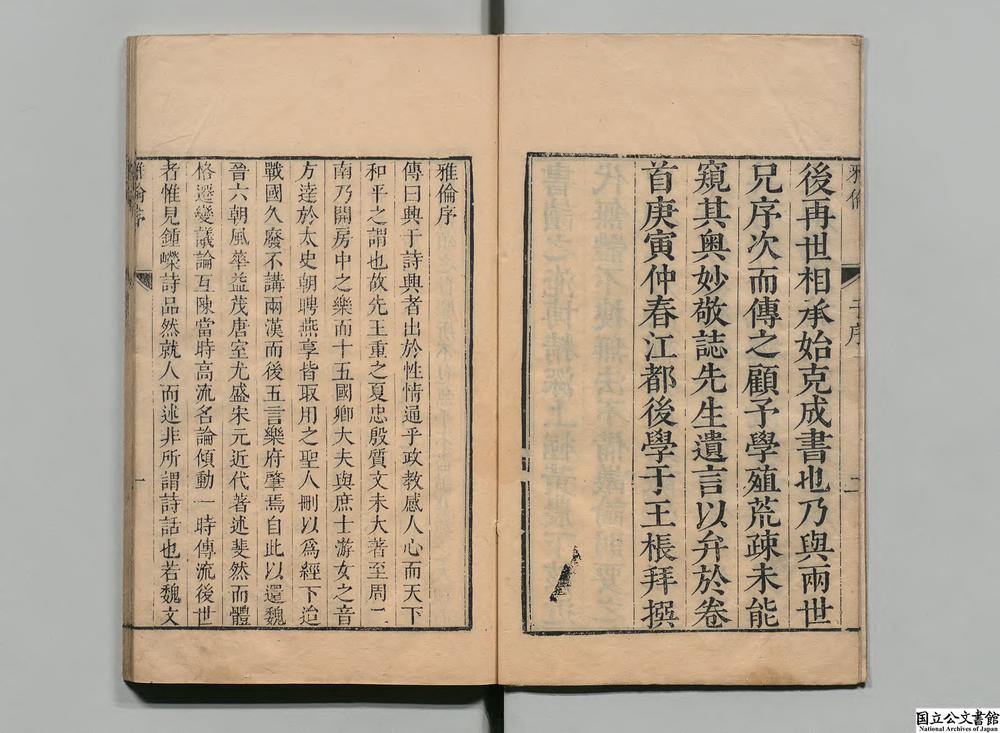 後再世相承始克成書也乃與兩世
兄序次而傳之顧予學殖荒疎未能
窺其奧妙敬誌先生遺言以弁於卷
首庚寅仲春江都後學于王棖拜撰
雅倫
于序
二
雅倫序
傳曰興于詩興者出於性情通乎政教感人心而天下
和平之謂也故先王重之夏忠殷質文未大著至周二
南乃開房中之樂而十五國卿大夫與庶士游女之音
方達於太史朝聘燕享皆取用之聖人刪以爲經下迨
戰國久廢不講兩漢而後五言樂府肇焉自此以還魏
晉六朝風華益茂唐室尤盛宋元近代著述斐然而體
格遞變議論互陳當時高流名論傾動一時傳流後世
者惟見鍾嶸詩品然就人而述非所謂詩話也若魏文
雅倫序
一
国立公文書館
National Archives of Japan